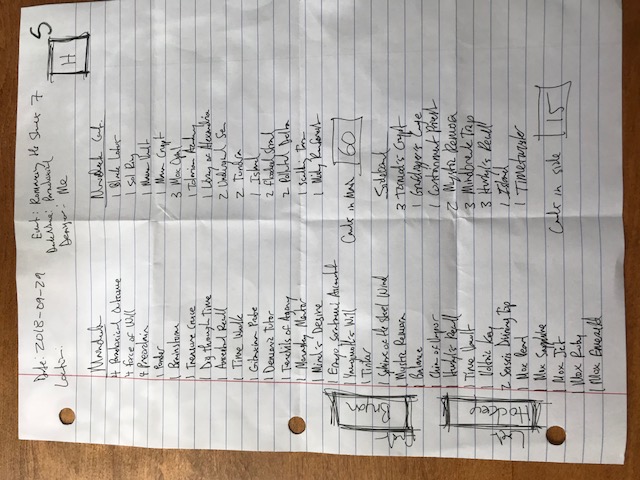 Date: 2018-09-29
Event: Romancing the Stones 7
Location:
Deck Name: Paradoxical
Designer: Me
H
5
Maindeck
4 Paradoxical Outcome
4 Force of Will
4 Preordain
1 Ponder
1 Brainstorm
1 Treasure Cruise
1 Dig through Time
1 Ancestral Recall
1 Time Walk
1 Gitaxian Probe
1 Demonic Tutor
1 Tendrils of Agony
1 Monastery Mentor
1 Mind's Desire
1 Erayo, Soratami Ascendant
1 Yawgmoth's Will
1 Tinker
1 Sphinx of the Steel Wind
1 Mystic Remora
1 Balance
1 Chain of Vapor
1 Hurkyl's Recall
1 Time Vault
1 Voltaic Key
2 Sensei's Divining Top
1 Mox Pearl
1 Mox Sapphire
1 Mox Jet
1 Mox Ruby
1 Mox Emerald
MainDeck Cont.
1 Black Lotus
1 Sol Ring
1 Mana Vault
1 Mana Crypt
3 Mox Opal
1 Tolarian Academy
1 Library of Alexandria
2 Underground Sea
2 Tundra
1 Island
2 Flooded Strand
2 Polluted Delta
1 Scalding Tarn
1 Misty Rainforest
Cards in Main 60
Sideboard
3 Tormod's Crypt
1 Grafdigger's Cage
1 Containment Priest
2 Mystic Remora
3 Mindbreak Trap
3 Hurkyl's Recall
1 Island
1 Timetwister
Cards in side 15
First
Bryan
Last
Hockey